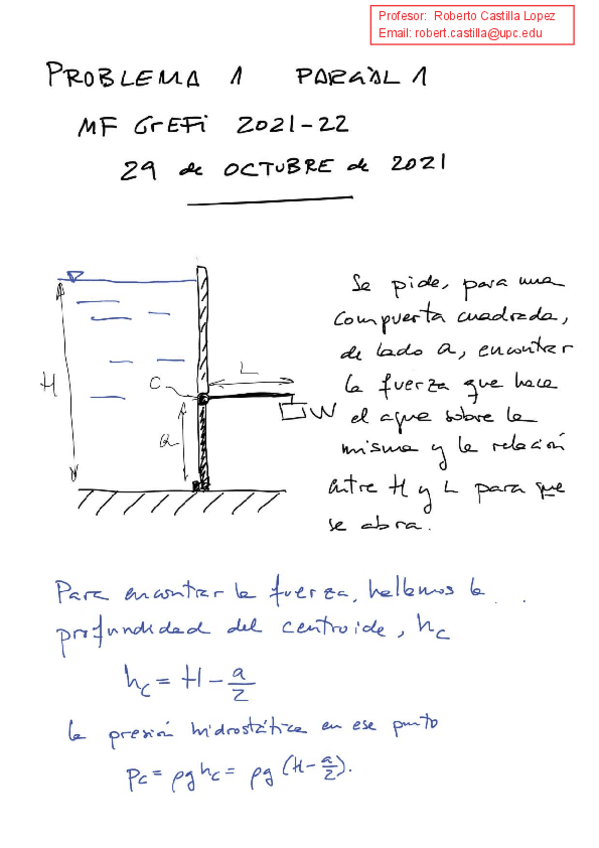 Profesor: Roberto Castilla Lopez
Email: robert.castilla@upc.edu
PROBLEMA 1 PARCIAL 1
MF GrEFi 2021-22
29 de OCTUBRE de 2021
Se pide, para una
compuerta cuadrada,
de lado a, encontrar
la fuerza que hace
el agua sobre la
misma y la relación
entre H y L para que
se abra.
H
C
L
W
a
Para encontrar la fuerza, hallemos la
profundidad del centroide, hc
hc = H - a/2
la presión hidrostática en ese punto
Pc = ρghc = ρg (H - a/2).